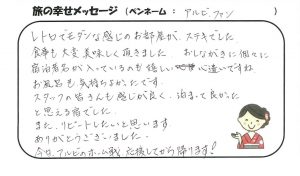 旅の幸せメッセージ (ペンネーム : アルビファン )
レトロでモダンな感じのお部屋が、ステキでした
食事も大変美味しく頂きました おしながきに個々に
宿泊者名が入っているのも嬉しい 心遣いですね
お風呂も気持ちよかったです
スタッフの皆さんも感じが良く、泊まって良かった
と思える宿でした。
また、リピートしたいと思います。
ありがとうございました。
今日、アルビのホーム戦、応援してから帰ります!